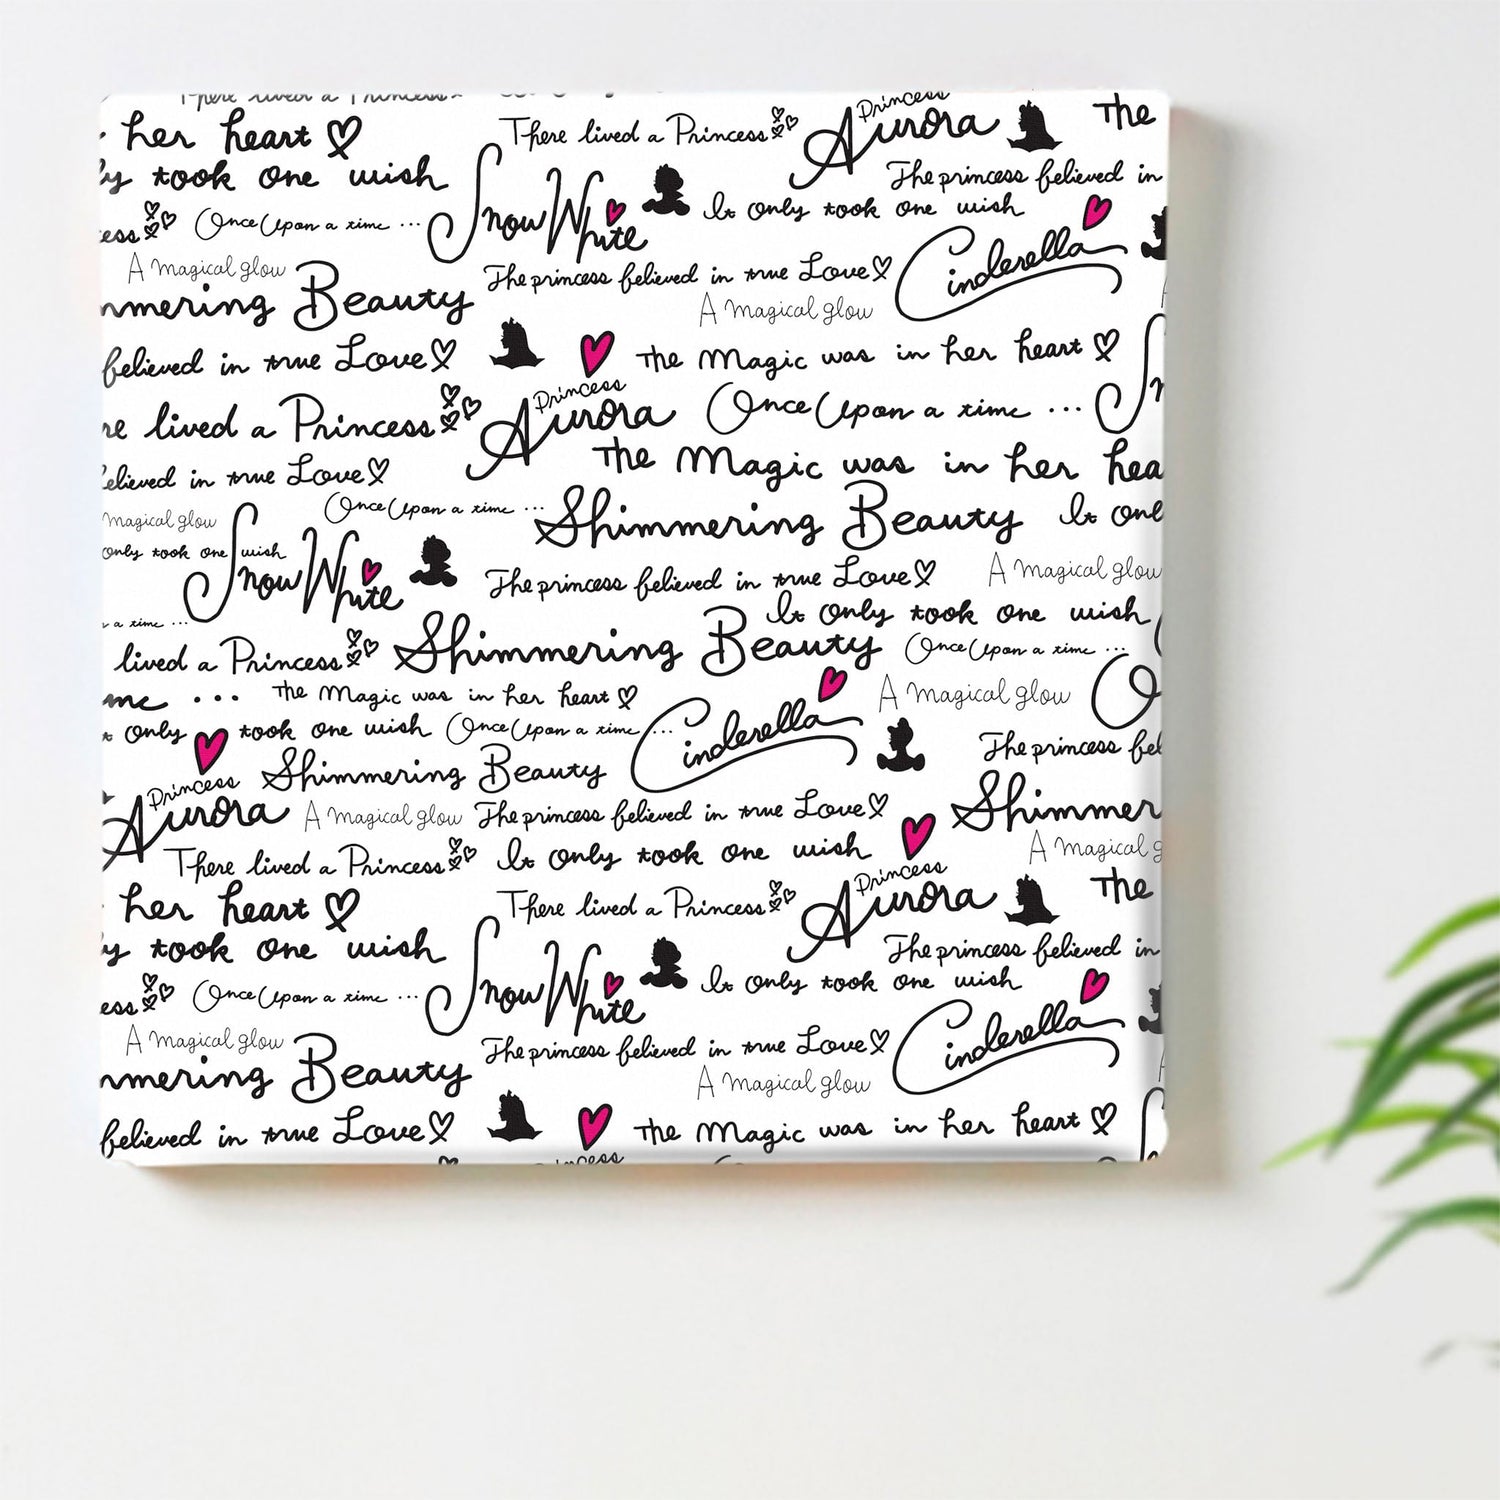 There lived a Princess
her heart
There lived a Princess
Princess
Aurora
The
took one wish
The princess believed in
Once Upon a time ...
Snow White
It only took one wish
Cinderella
A magical glow
Beauty
The princess believed in true Love
A magical glow
believed in true Love
The Magic was in her heart
lived a Princess
Princess
Aurora
Once Upon a time ...
The Magic was in her
believed in true Love
Once Upon a time ...
Shimmering Beauty
It
magical glow
only took one wish
Snow White
The princess believed in true Love
A magical glow
a time ...
It only took one wish
lived a Princess
Shimmering Beauty
Once Upon a time ...
...
The Magic was in her heart
Cinderella
A magical glow
only took one wish
Once Upon a time ...
The princess
Princess
Aurora
Shimmering Beauty
A magical glow
The princess believed in true Love
Shimmer
There lived a Princess
It only took one wish
A magical
her heart
There lived a Princess
Princess
Aurora
The
took one wish
The princess believed in
Once Upon a time ...
Snow White
It only took one wish
Cinderella
A magical glow
Beauty
The princess believed in true Love
A magical glow
believed in true Love
The Magic was in her heart